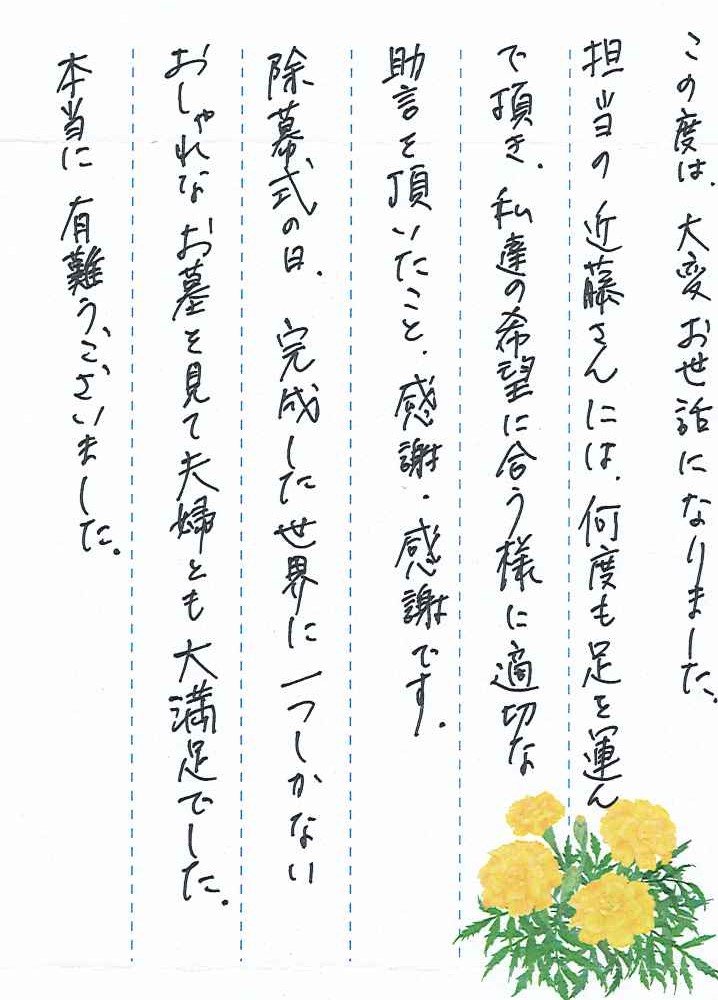 この度は、大変お世話になりました。
担当の近藤さんには、何度も足を運ん
で頂き、私達の希望に合う様に適切な
助言を頂いたこと、感謝・感謝です。
除幕式の日、完成した世界に一つしかない
おしゃれなお墓を見て夫婦とも大満足でした。
本当に有難うございました。